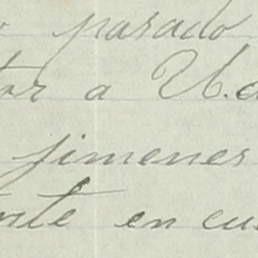 o parado
tor a U.d
jimenes
orte en cu